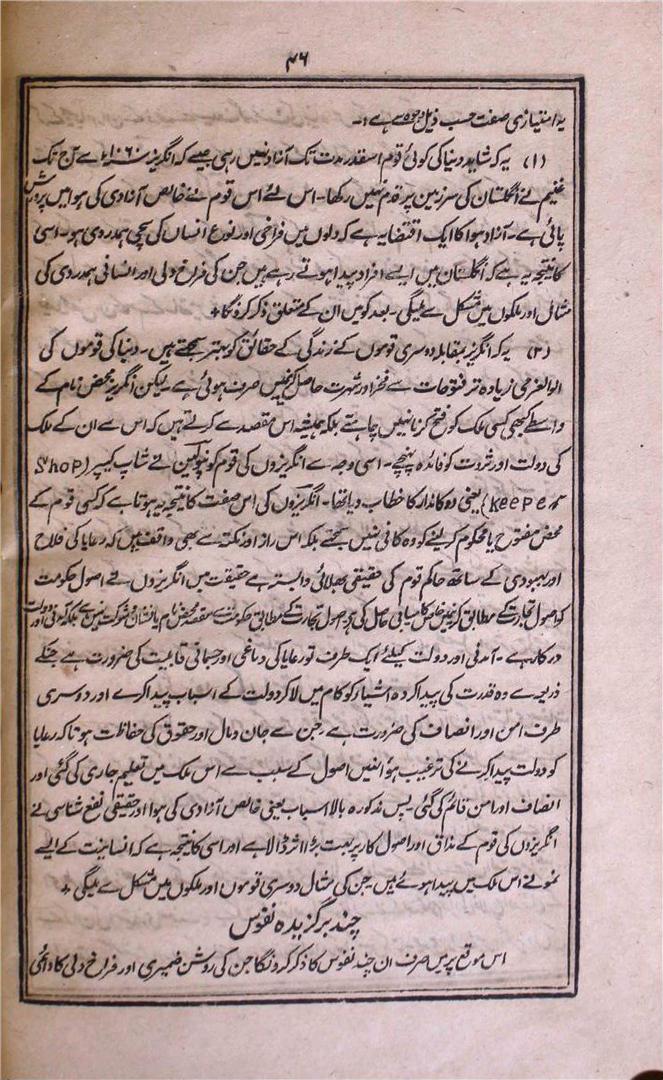 ۴۶
یہ امتیازی صفت حسب ذیل وجوہ سے ہے :۔
(۱) یہ کہ شاید دنیا کی کوئی قوم اسقدر مدت تک آزاد نہیں رہی جیسے کہ انگریز ۱۰۶۰ء سے آج تک
غنیم نے انگلستان کی سرزمین پر قدم نہیں رکھا۔ اس لئے اس قوم نے خالص آزادی کی ہوا میں پرورش
پائی ہے۔ آزاد ہوا کا ایک اقتضا یہ ہے کہ دلوں میں فراخی اور نوع انسان کی سچی ہمدردی ہو۔ اسی
کا نتیجہ یہ ہے کہ انگلستان میں ایسے افراد پیدا ہوتے رہے ہیں جن کی فراخ دلی اور انسانی ہمدردی کی
مثال اور ملکوں میں مشکل سے ملیگی۔ بعد کو میں ان کے متعلق ذکر کرونگا +
(۲) یہ کہ انگریز بمقابلہ دوسری قوموں کے زندگی کے حقائق کو بہتر سمجھتے ہیں۔ دنیا کی قوموں کی
الوالعزمی زیادہ تر فتوحات سے فخر اور شہرت حاصل کرنیمیں صرف ہوئی ہے۔ لیکن انگریز محض نام کے
واسطے کبھی کسی ملک کو فتح کرنا نہیں چاہتے بلکہ ہمیشہ اس مقصد سے کرتے ہیں کہ اس سے ان کے ملک
کی دولت اور ثروت کو فائدہ پہنچے۔ اسی وجہ سے انگریزوں کی قوم کو نپولین نے شاپ کیپر (Shop
Keeper) یعنی دوکاندار کا خطاب دیا تھا۔ انگریزوں کی اس صفت کا نتیجہ یہ ہوتا ہے کہ کسی قوم کے
محض مفتوح یا محکوم کر لینے کو وہ کافی نہیں سمجھتے بلکہ اس راز اور نکتہ سے بھی واقف ہیں کہ رعایا کی فلاح
اور بہبودی کے ساتھ حاکم قوم کی حقیقی بھلائی وابستہ ہے حقیقت میں انگریزوں نے اصول حکومت
کو اصول تجارت کے مطابق کرنیمیں خاص کامیابی حاصل کی ہے اصول تجارت کے مطابق حکومت سے مقصد محض نام یا شان و شوکت نہیں ہے بلکہ آمدنی اور دولت
درکار ہے۔ آمدنی اور دولت کیلئے ایک طرف تو رعایا کی دماغی اور جسمانی قابلیت کی ضرورت ہے جنکے
ذریعہ سے وہ قدرت کی پیدا کردہ اشیار کو کام میں لاکر دولت کے اسباب پیدا کرے اور دوسری
طرف امن اور انصاف کی ضرورت ہے جن سے جان و مال اور حقوق کی حفاظت ہو تاکہ رعایا
کو دولت پیدا کرنے کی ترغیب ہو انہیں اصول کے سبب سے اس ملک میں تعلیم جاری کی گئی اور
انصاف اور امن قائم کی گئی۔ پس مذکورہ بالا اسباب یعنی خالص آزادی کی ہوا اور حقیقی نفع شناسی نے
انگریزوں کی قوم کے مذاق اور اصول کار پر بہت بڑا اثر ڈالا ہے اور اسی کا نتیجہ ہے کہ انسانیت کے ایسے
نمونے اس ملک میں پیدا ہوئے ہیں جن کی مثال دوسری قوموں اور ملکوں میں مشکل سے ملیگی +
چند برگزیدہ نفوس
اس موقع پر میں صرف ان چند نفوس کا ذکر کرونگا جن کی روشن ضمیری اور فراخ دلی کا دائمی